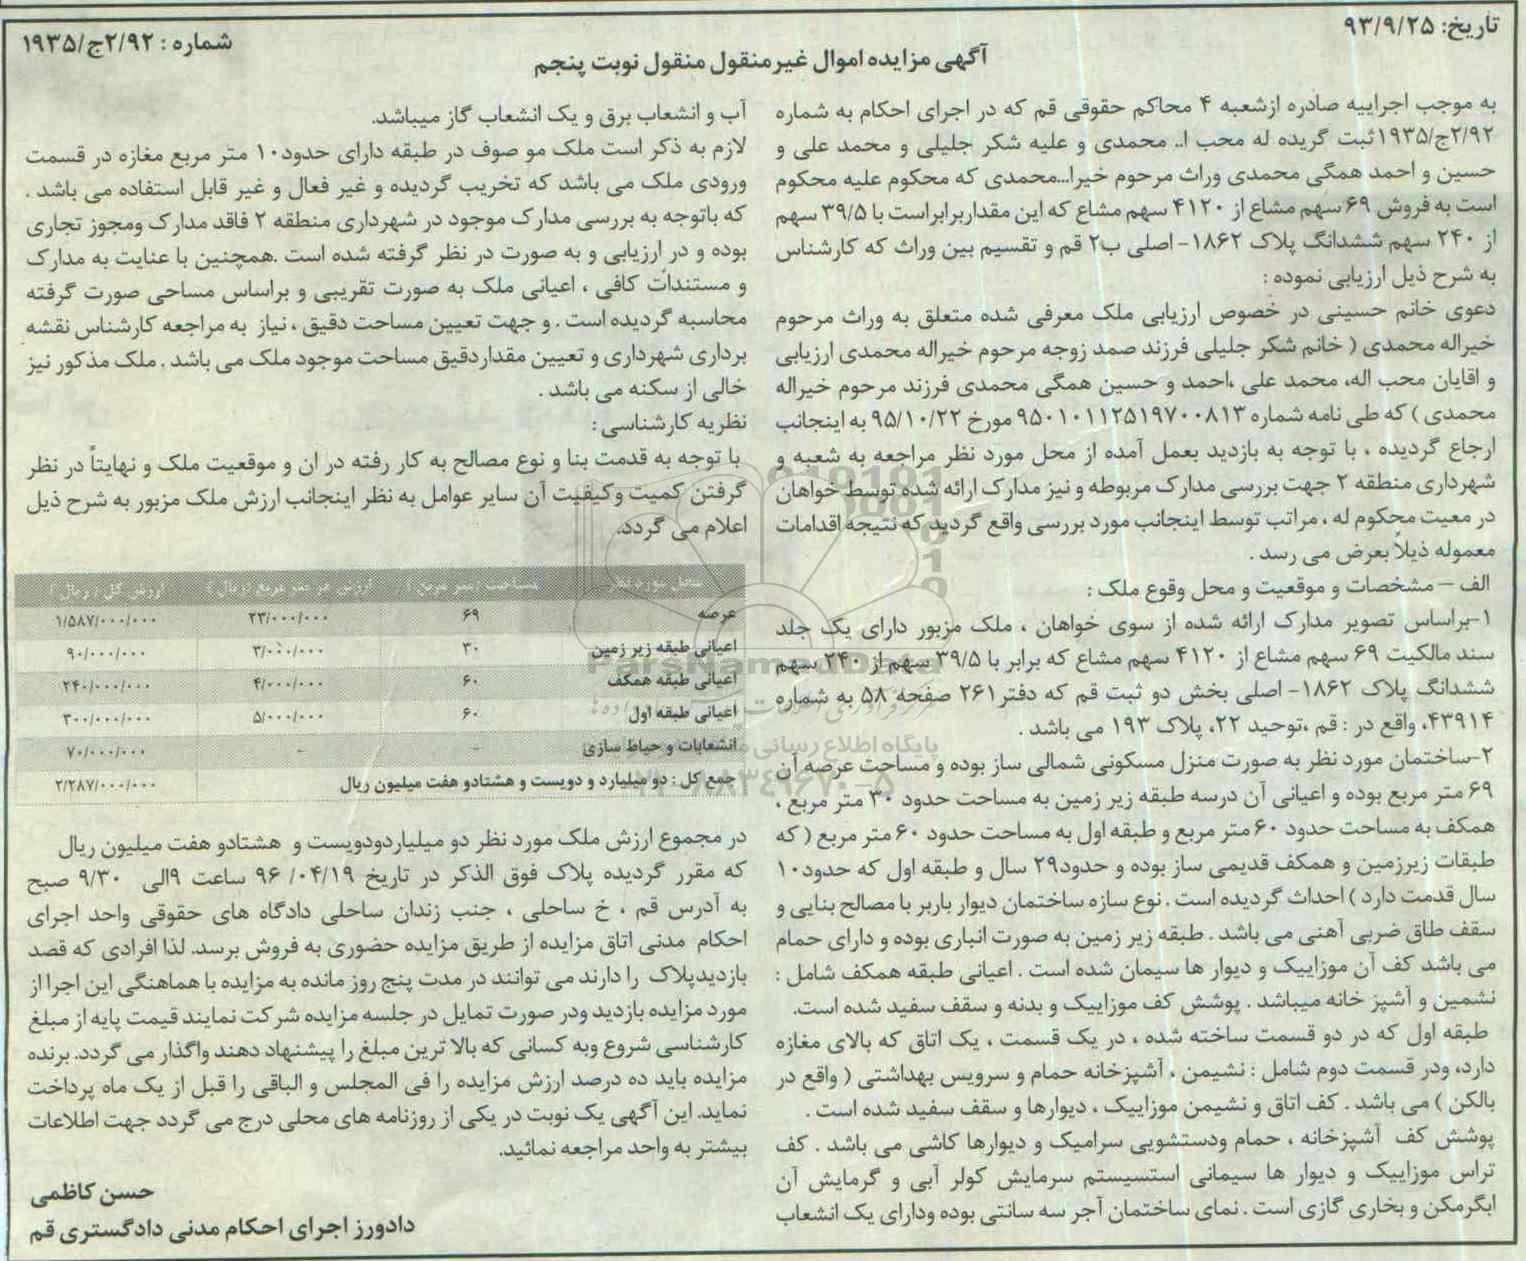 تاریخ: ۹۳/۹/۲۵
شماره : ۲/۹۲ج/۱۹۳۵
آگهی مزایده اموال غیرمنقول منقول نوبت پنجم
به موجب اجراییه صادره ازشعبه ۴ محاکم حقوقی قم که در اجرای احکام به شماره
۲/۹۲ج/۱۹۳۵ثبت گریده له محب ا.. محمدی و علیه شکر جلیلی و محمد علی و
حسین و احمد همگی محمدی وراث مرحوم خیرا...محمدی که محکوم علیه محکوم
است به فروش ۶۹ سهم مشاع از ۴۱۲۰ سهم مشاع که این مقداربرابراست با ۳۹/۵ سهم
از ۲۴۰ سهم ششدانگ پلاک ۱۸۶۲- اصلی ب۲ قم و تقسیم بین وراث که کارشناس
به شرح ذیل ارزیابی نموده :
دعوی خانم حسینی در خصوص ارزیابی ملک معرفی شده متعلق به وراث مرحوم
خیراله محمدی ( خانم شکر جلیلی فرزند صمد زوجه مرحوم خیراله محمدی ارزیابی
و اقایان محب اله، محمد علی ،احمد و حسین همگی محمدی فرزند مرحوم خیراله
محمدی ) که طی نامه شماره ۹۵۰۱۰۱۱۲۵۱۹۷۰۰۸۱۳ مورخ ۹۵/۱۰/۲۲ به اینجانب
ارجاع گردیده ، با توجه به بازدید بعمل آمده از محل مورد نظر مراجعه به شعبه و
شهرداری منطقه ۲ جهت بررسی مدارک مربوطه و نیز مدارک ارائه شده توسط خواهان
در معیت محکوم له ، مراتب توسط اینجانب مورد بررسی واقع گردید که نتیجه اقدامات
معموله ذیلاً بعرض می رسد .
الف – مشخصات و موقعیت و محل وقوع ملک :
۱-براساس تصویر مدارک ارائه شده از سوی خواهان ، ملک مزبور دارای یک جلد
سند مالکیت ۶۹ سهم مشاع از ۴۱۲۰ سهم مشاع که برابر با ۳۹/۵ سهم از ۲۴۰ سهم
ششدانگ پلاک ۱۸۶۲- اصلی بخش دو ثبت قم که دفتر۲۶۱ صفحه ۵۸ به شماره
۴۳۹۱۴، واقع در : قم ،توحید ۲۲، پلاک ۱۹۳ می باشد .
۲-ساختمان مورد نظر به صورت منزل مسکونی شمالی ساز بوده و مساحت عرصه آن
۶۹ متر مربع بوده و اعیانی آن درسه طبقه زیر زمین به مساحت حدود ۳۰ متر مربع ،
همکف به مساحت حدود ۶۰ متر مربع و طبقه اول به مساحت حدود ۶۰ متر مربع ( که
طبقات زیرزمین و همکف قدیمی ساز بوده و حدود۲۹ سال و طبقه اول که حدود۱۰
سال قدمت دارد ) احداث گردیده است . نوع سازه ساختمان دیوار باربر با مصالح بنایی و
سقف طاق ضربی آهنی می باشد . طبقه زیر زمین به صورت انباری بوده و دارای حمام
می باشد کف آن موزاییک و دیوار ها سیمان شده است . اعیانی طبقه همکف شامل :
نشمین و آشپز خانه میباشد . پوشش کف موزاییک و بدنه و سقف سفید شده است.
طبقه اول که در دو قسمت ساخته شده ، در یک قسمت ، یک اتاق که بالای مغازه
دارد، ودر قسمت دوم شامل : نشیمن ، آشپزخانه حمام و سرویس بهداشتی ( واقع در
بالکن ) می باشد . کف اتاق و نشیمن موزاییک ، دیوارها و سقف سفید شده است .
پوشش کف آشپزخانه ، حمام ودستشویی سرامیک و دیوارها کاشی می باشد . کف
تراس موزاییک و دیوار ها سیمانی استسیستم سرمایش کولر آبی و گرمایش آن
ابگرمکن و بخاری گازی است . نمای ساختمان آجر سه سانتی بوده ودارای یک انشعاب
آب و انشعاب برق و یک انشعاب گاز میباشد.
لازم به ذکر است ملک مو صوف در طبقه دارای حدود۱۰ متر مربع مغازه در قسمت
ورودی ملک می باشد که تخریب گردیده و غیر فعال و غیر قابل استفاده می باشد .
که باتوجه به بررسی مدارک موجود در شهرداری منطقه ۲ فاقد مدارک ومجوز تجاری
بوده و در ارزیابی و به صورت در نظر گرفته شده است .همچنین با عنایت به مدارک
و مستندات کافی ، اعیانی ملک به صورت تقریبی و براساس مساحی صورت گرفته
محاسبه گردیده است . و جهت تعیین مساحت دقیق ، نیاز به مراجعه کارشناس نقشه
برداری شهرداری و تعیین مقداردقیق مساحت موجود ملک می باشد . ملک مذکور نیز
خالی از سکنه می باشد .
نظریه کارشناسی :
با توجه به قدمت بنا و نوع مصالح به کار رفته در ان و موقعیت ملک و نهایتاً در نظر
گرفتن کمیت وکیفیت آن سایر عوامل به نظر اینجانب ارزش ملک مزبور به شرح ذیل
اعلام می گردد.
محل مورد نظر مساحت (متر مربع ) ارزش هر متر مربع (ریال ) ارزش کل ( ریال )
عرصه ۶۹ ۲۳/۰۰۰/۰۰۰ ۱/۵۸۷/۰۰۰/۰۰۰
اعیانی طبقه زیر زمین ۳۰ ۳/۰۰۰/۰۰۰ ۹۰/۰۰۰/۰۰۰
اعیانی طبقه همکف ۶۰ ۴/۰۰۰/۰۰۰ ۲۴۰/۰۰۰/۰۰۰
اعیانی طبقه اول ۶۰ ۵/۰۰۰/۰۰۰ ۳۰۰/۰۰۰/۰۰۰
انشعابات و حیاط سازی - - ۷۰/۰۰۰/۰۰۰
جمع کل : دو میلیارد و دویست و هشتادو هفت میلیون ریال ۲/۲۸۷/۰۰۰/۰۰۰
در مجموع ارزش ملک مورد نظر دو میلیاردودویست و هشتادو هفت میلیون ریال
که مقرر گردیده پلاک فوق الذکر در تاریخ ۹۶/۰۴/۱۹ ساعت ۹الی ۹/۳۰ صبح
به آدرس قم ، خ ساحلی ، جنب زندان ساحلی دادگاه های حقوقی واحد اجرای
احکام مدنی اتاق مزایده از طریق مزایده حضوری به فروش برسد. لذا افرادی که قصد
بازدیدپلاک را دارند می توانند در مدت پنج روز مانده به مزایده با هماهنگی این اجرا از
مورد مزایده بازدید ودر صورت تمایل در جلسه مزایده شرکت نمایند قیمت پایه از مبلغ
کارشناسی شروع وبه کسانی که بالا ترین مبلغ را پیشنهاد دهند واگذار می گردد. برنده
مزایده باید ده درصد ارزش مزایده را فی المجلس و الباقی را قبل از یک ماه پرداخت
نماید. این آگهی یک نوبت در یکی از روزنامه های محلی درج می گردد جهت اطلاعات
بیشتر به واحد مراجعه نمائید.
حسن کاظمی
دادورز اجرای احکام مدنی دادگستری قم
ParsNamadData
پایگاه اطلاع رسانی
۰۲۱-۸۸۳۴۹۶۷۰-۵